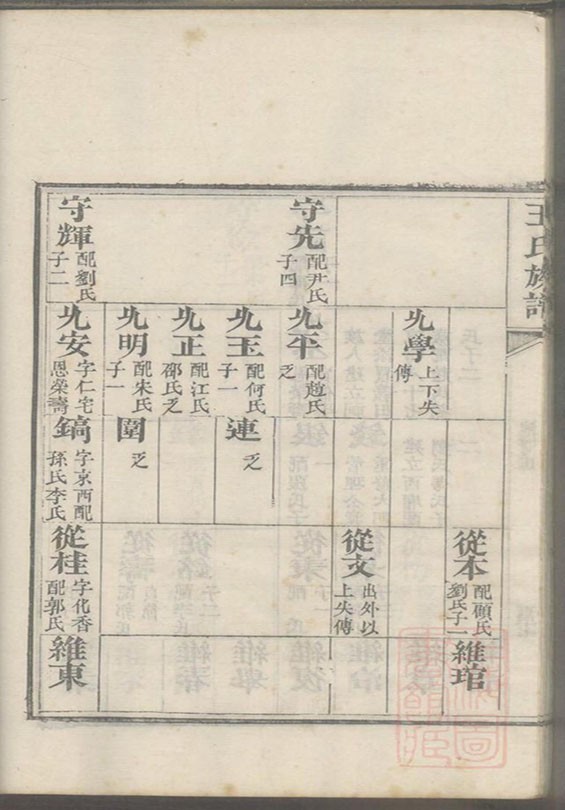 王氏族譜
守先
配尹氏
子四
守輝
配劉氏
子二
允學
上下失
傳
允平
配趙氏
乏
允玉
配何氏
子一
允正
配江氏
邵氏乏
允明
配宋氏
子一
允安
字仁宅
恩榮壽
連
乏
圍
乏
鎬
字京西配
孫氏李氏
從本
配顧氏
劉氏子一
從文
出外以
上失傳
從桂
字化香
配郭氏
維琯
維東